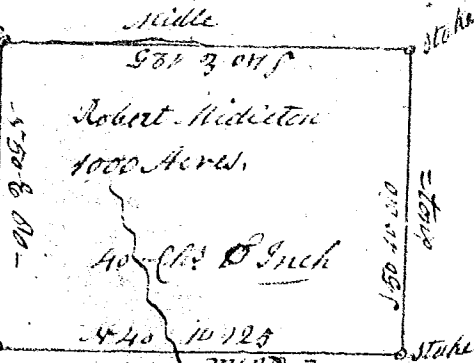 Midle
stake
S 40 E 125
Robert Midleton
1000 Acres.
N 50 E 80
S 50 W 80
40 Chs P Inch
N 40 W 125
stake